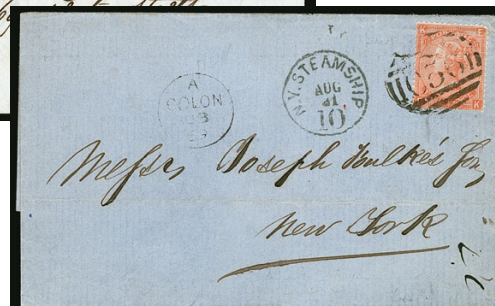 A
COLON
N.Y. STEAMSHIP
AUG
21
10
Messrs Joseph Foulke's Son
New York